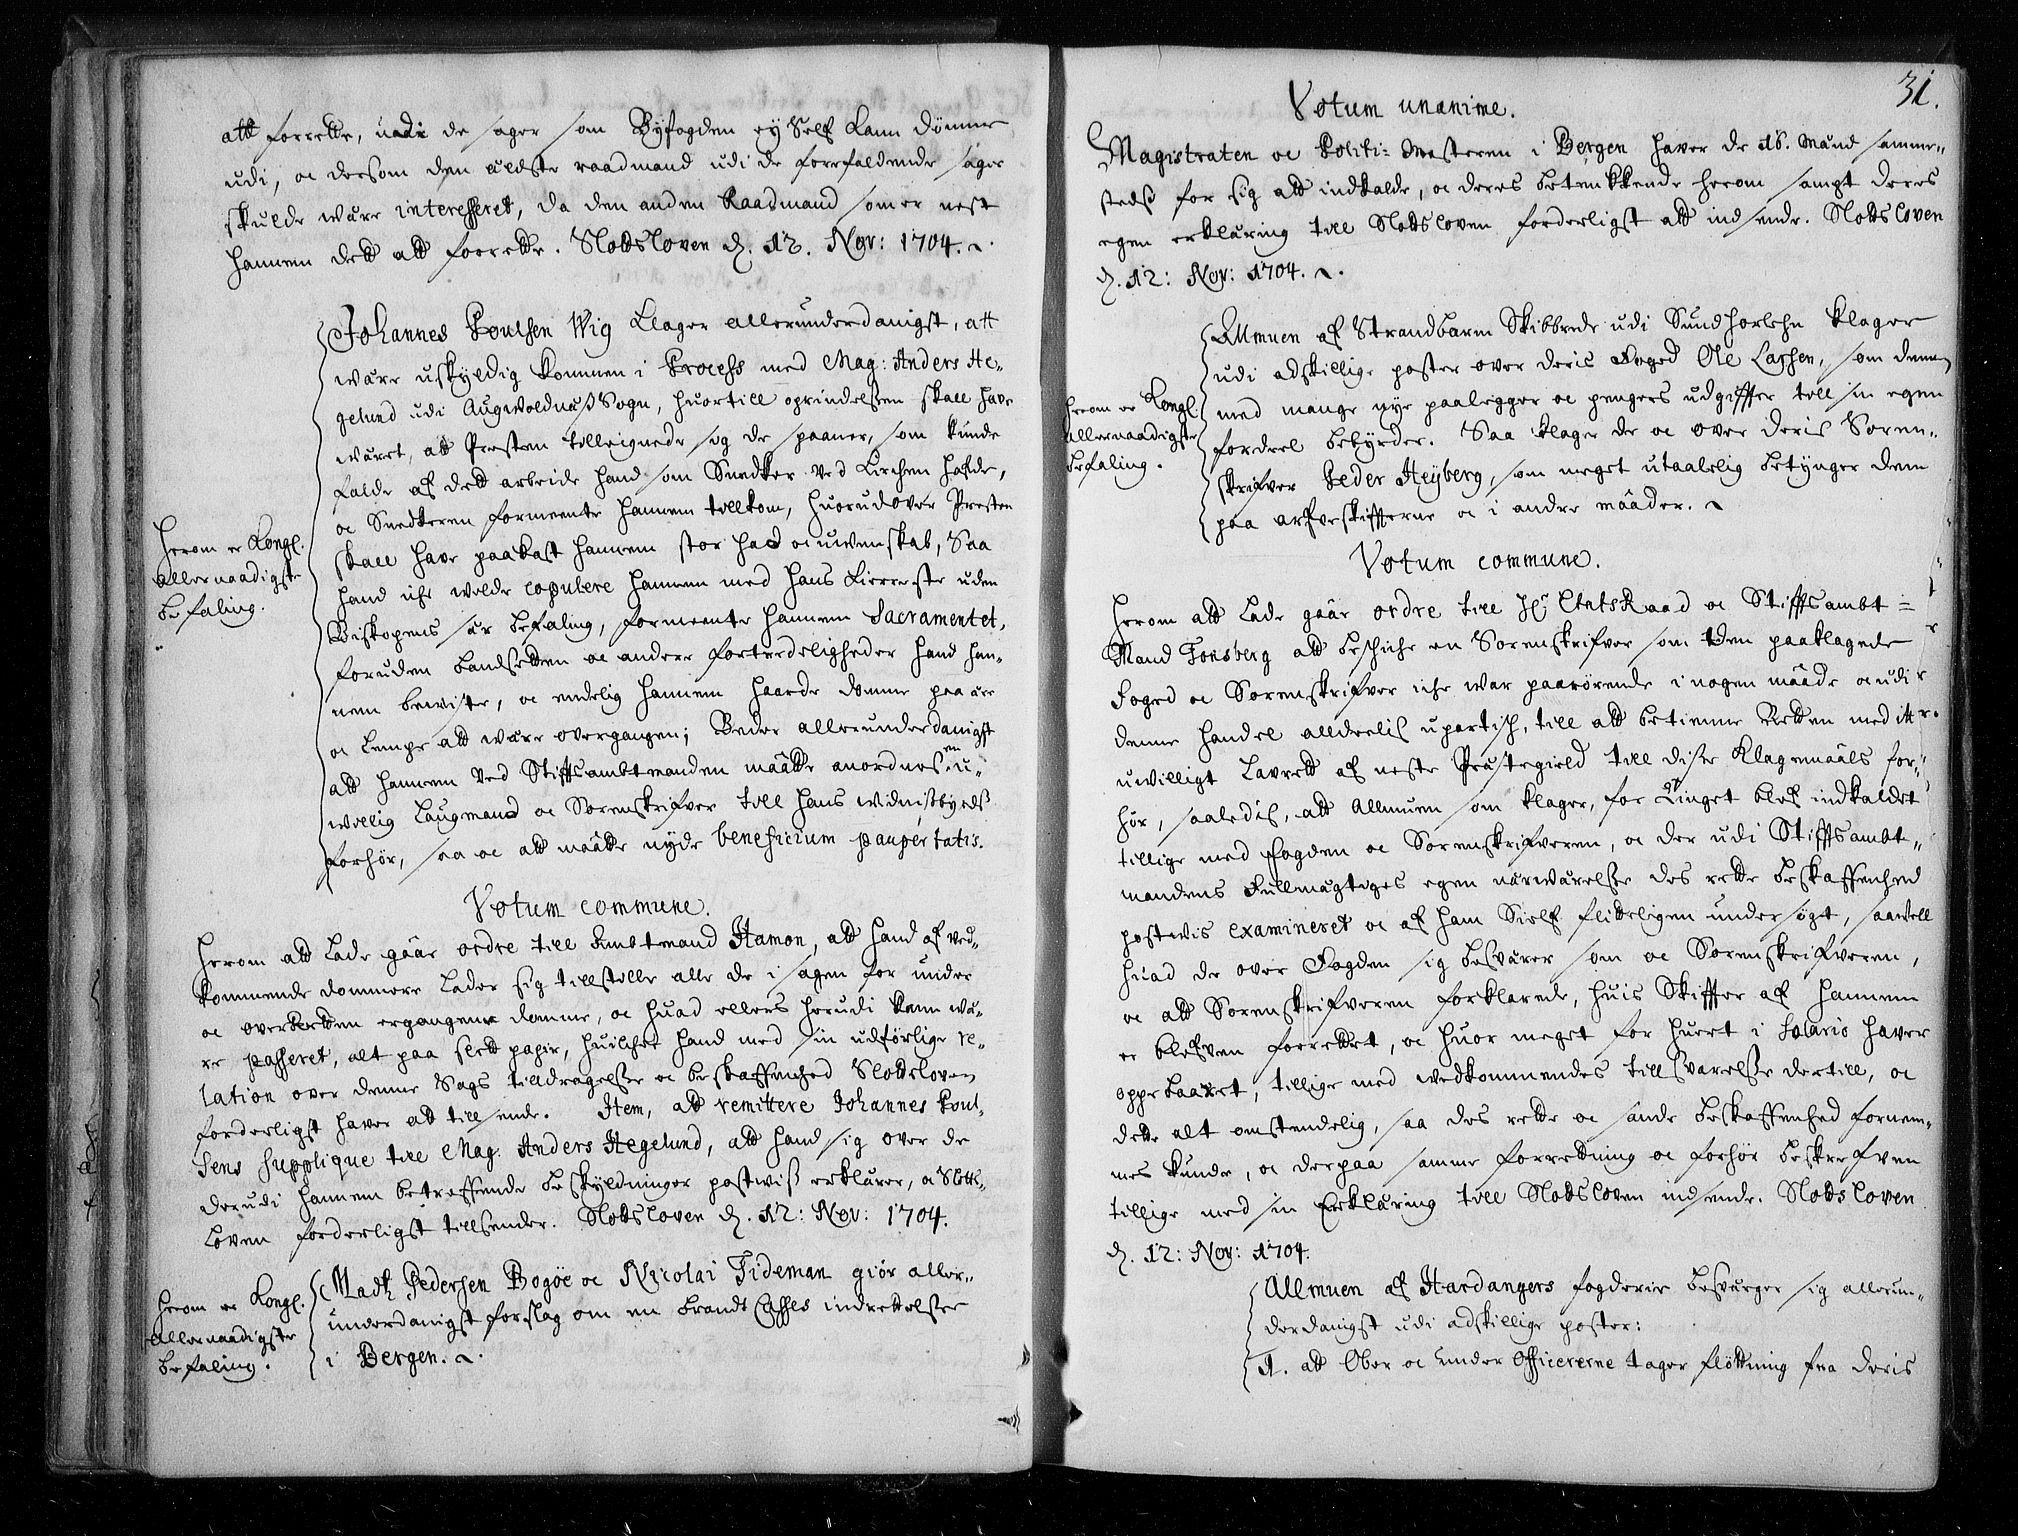 att forrette, udi de sager som Byfogden ey Self kann dømme
udi, oc dersom den ældste raadmand udi de forefaldende sager
skulde være interesseret, da den anden Raadmand som er nest
hannem dett att forrette. Slotsloven d. 12. Nov: 1704.
Johannes Poulsen Wig klager allerunderdanigst, att
være uskyldig kommen i Process med Mag: Anders He-
gelund udi Augwoldnæß Sogn, huortill oprindelsen skall have
wæret, att Presten tilleignede sig de spaaner, som kunde
falde af dett arbeide hand som Snedker ved Kirchen hafde,
oc Snedkeren formeente hannem tillkom, huorudover Presten
skall have paakast hannem stor had oc uvenskab, Saa
hand iche wilde copulere hannem med hans Kierreste uden
Biskopens sær befaling, formeente hannem Sacramentet,
foruden bandsetten oc andere fortredeligheder hand han-
nem beviste, oc endelig hannem haarde domme paa ære
oc lempe att være overgangen; Beder allerunderdanigst
att hannem ved Stiftsambtmanden maatte anordnes en u-
willig Laugmand oc Sorenskrifver till hans widnißbyrds
forhør, saa oc att maatte nyde beneficium paupertatis.
Herom er Kongl.
allernaadigste
befaling.
Votum commune.
Herom att lade gaar ordre till Ambtmand Hamon, att hand af ved-
kommende dommere lader sig tillstelle alle de i sagen for under
oc overRetten ergangene domme, oc huad ellers herudi kann wæ-
re passeret, alt paa slett papir, huilchet hand med sin udførlige re-
lation over denne Sags tilldragelse oc beskaffenhed Slottsloven
forderligst haver att tillsende. Item, att remittere Johannes Poul-
sens supplique till Mag: Anders Hegelund, att hand sig over de
derudi hannem betreffende beskyldninger postwiß erklærer, oc Slotts-
loven forderligst tillsender. Slottsloven d. 12: Nov: 1704.
Herom er Kongl.
allernaadigste
befaling.
Madz Pedersen Bogøe oc Nicolai Tideman giør aller-
underdanigst forslag om en brandt Casses indrettelse
i Bergen.
31.
Votum unanime.
Magistraten oc Politi-Mesteren i Bergen haver de 16. Mænd samme-
steds for sig att indkalde, oc deres betenkkende herom sampt deres
egen erklæring till Slottsloven forderligst att indsende. Slottsloven
d. 12: Nov: 1704.
Herom er Kongl.
allernaadigste
befaling.
Allmuen af Strandbarm Skibbrede udi Sundhorlehn klager
udi adskillige poster over deris Foged Ole Larssen, som dennem
med mange nye paalegger oc pengers udgiffter till sin egen
fordeel bebyrder. Saa klager de oc over deris Soren-
skrifver Peder Heyberg, som meget utaalelig betynger dem
paa arfveskiffterne oc i andre maader.
Votum commune.
Herom att lade gaar ordre till Hr EtatsRaad oc Stifftsambt-
Mand Tonsberg att beschiche en Sorenskrifver som den paaklagede
Foged oc Sorenskrifver iche war paarørende i nogen maade oc udi
denne handel alldeelis upartisk, till att betienne Retten med itt
uwilligt lavrett af neste Præstegield till disse Klagemaals for-
hør, saaledis, att Allmuen som klager, for Tinget blef indkaldet
tillige med Fogden oc Sorenskrifveren, oc der udi Stifftsambt-
mandens Fullmægtiges egen nærwærelse des rette beskaffenhed
postwis examineret oc af ham Sielf flitteligen undersøgt, saawell
huad de over Fogden sig besværer som oc Sorenskrifveren,
oc att Sorenskrifveren forklarede, huis Skiffter af hannem
er blefven forrettet, oc huor meget for huert i Salario haver
oppebaaret, tillige med vedkommendes tillsvarelse dertill, oc
dette alt omstendelig, saa des rette oc sande beskaffenhed fornem-
mes kunde, oc derpaa samme forrettning oc forhør beskrefven
tillige med sin Erklæring till Slottsloven indsende. Slottsloven
d. 12: Nov: 1704.
Allmuen af Hardangers fogderie besværger sig allerun-
derdanigst udi adskillige poster:
1. att Ober oc under Officererne tager fløttning fra deris